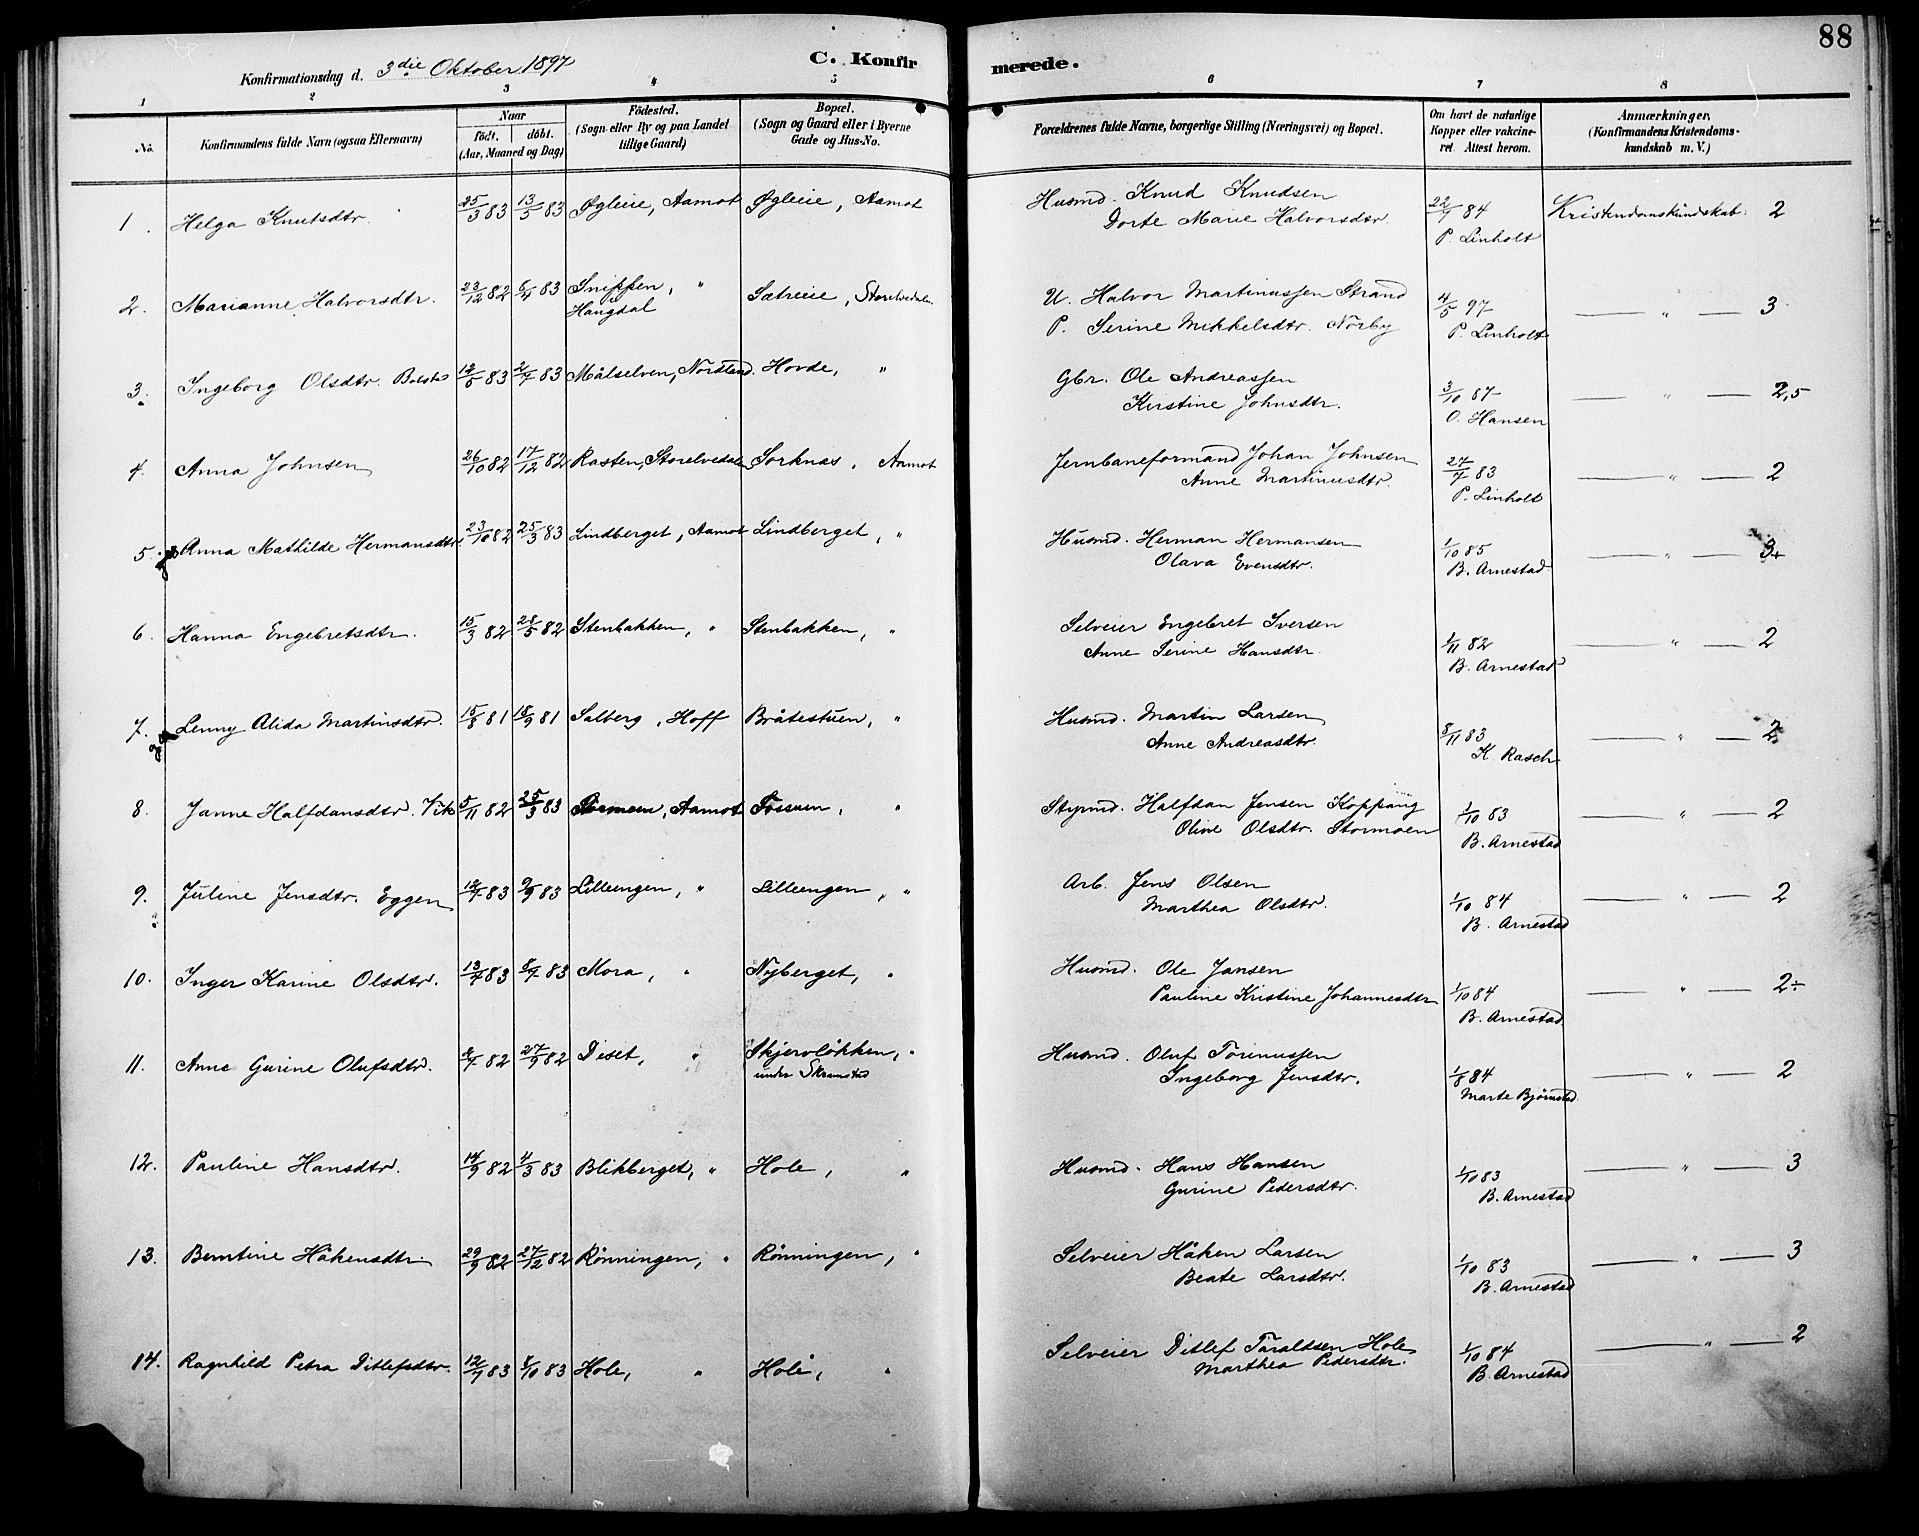 88
Konfirmationsdag d. 3die Oktober 1897 C. Konfirmerede.
1 2 3 4 5 6 7 8
No.
Konfirmandens fulde Navn (ogsaa Efternavn)
Naar
födt. döbt.
(Aar, Maaned og Dag)
Födested.
(Sogn eller By og paa Landet
tillige Gaard)
Bopæl.
(Sogn og Gaard eller i Byerne
Gade og Hus-No.
Forældrenes fulde Navne, borgerlige Stilling (Næringsvei) og Bopæl.
Om havt de naturlige
Kopper eller vakcine-
ret. Attest herom.
Anmærkninger.
(Konfirmandens Kristendoms-
kundskab m. V.)
1. Helga Knutsdtr. 25/3 83 13/5 83 Øgleie, Aamot Øgleie, Aamot Husmd. Knud Knudsen 22/7 84 Kristendomskundskab: 2
Dorte Marie Halvorsdtr. P. Linholt
2. Marianne Halvorsdtr. 23/12 82 6/4 83 Snippen, " Sætreie, Storelvedalen U. Halvor Martinussen Strand 4/5 97 " 3
Haugdal P. Serine Mikkelsdtr. Norby P. Linholt
3. Ingeborg Olsdtr. Bolstad 12/5 83 2/7 83 Målselven, Nordland. Hovde, " Gbr. Ole Andreassen 3/10 87 " 2,5
Kirstine Johnsdtr. O. Hansen
4. Anna Johnsen 26/10 82 17/12 82 Rasten, Storelvedalen Sorknæs, Aamot Jernbaneformand Johan Johnsen 27/7 83 " 2
Anne Martinusdtr. P. Linholt
5. Anna Mathilde Hermansdtr. 23/10 82 25/3 83 Lindberget, Aamot Lindberget, " Husmd. Herman Hermansen 1/10 85 " 3+
Olava Evensdtr. B. Arnestad
6. Hanna Engebretsdtr. 15/3 82 28/5 82 Stenbakken, " Stenbakken, " Selveier Engebret Iversen 1/11 82 " 2
Anne Serine Hansdtr. B. Arnestad
7. Lenny Alida Martinsdtr. 15/8 81 18/9 81 Salberg, Hoff Bråtestuen, " Husmd. Martin Larsen 8/11 83 " 2
Anne Andreasdtr. K. Rasch
8. Janne Halfdansdtr. Vik 5/11 82 25/3 83 Aamot Fossum, " Styrmd. Halfdan Jensen Koppang 1/10 83 " 2
Oline Olsdtr. Stormoen B. Arnestad
9. Juline Jensdtr. Eggen 12/7 83 9/9 83 Lilleengen, " Lilleengen, " Arb. Jens Olsen 1/10 84 " 2
Marthea Olsdtr. B. Arnestad
10. Inger Karine Olsdtr. 13/4 83 8/7 83 Mora, " Nyberget, " Husmd. Ole Jansen 1/10 84 " 2÷
Pauline Kristine Johannesdtr B. Arnestad
11. Anne Gurine Olufsdtr. 2/7 82 27/9 82 Deset, " Skjervløkken, " Husmd. Oluf Torinussen 1/8 84 " 2
under Skramstad Ingeborg Jensdtr. Marte Bjørnstad
12. Pauline Hansdtr. 14/9 82 4/3 83 Blikberget, " Hole, " Husmd. Hans Hansen 1/10 83 " 3
Gurine Pedersdtr. B. Arnestad
13. Berntine Håkensdtr. 29/9 82 27/12 82 Rønningen, " Rønningen, " Selveier Håken Larsen 1/10 83 " 3
Beate Larsdtr. B. Arnestad
14. Ragnhild Petra Ditlefsdtr. 12/7 83 8/10 83 Hole, " Hole, " Selveier Ditlef Taraldsen Hole 1/10 84 " 2
Marthea Pedersdtr. B. Arnestad